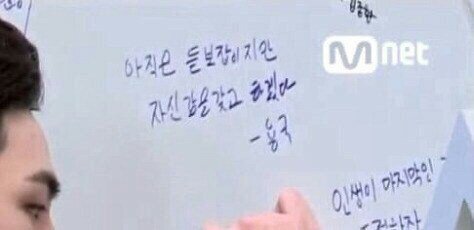 아직은 듣보잡이지만
자신감을갖고 하겠다
-용국
Mnet
인생이 마지막인